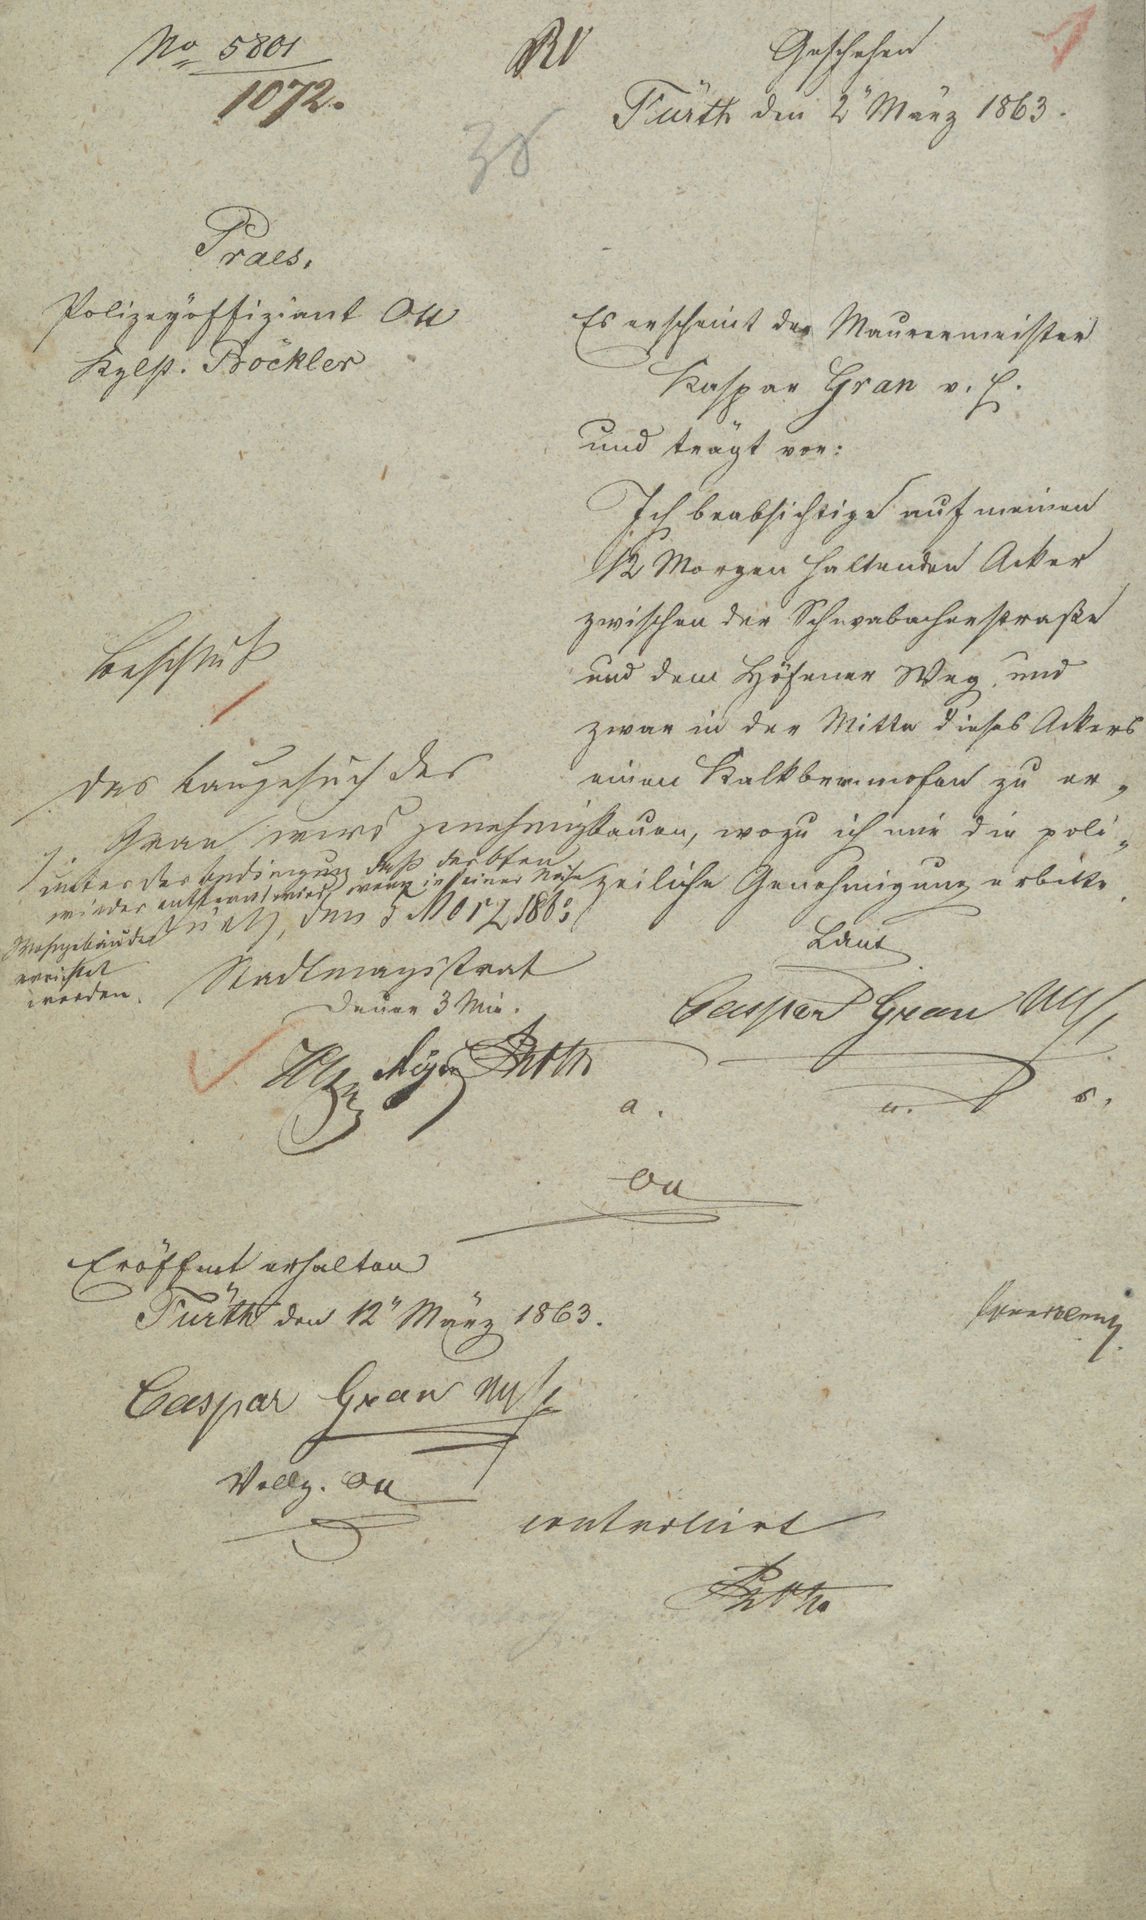 No 5801
1072.
Geschehen
Fürth den 2" März 1863.
38
Praes.
Polizeyoffiziant Ott
Böckler
Es erscheint der Maurermeister
Kaspar Gran v. h.
und trägt vor:
Ich beabsichtige auf meinen
12 Morgen haltenden Acker
zwischen der Schwabacherstraße
und dem Höfener Weg, und
zwar in der Mitte dieses Ackers
einen Kalkbrennofen zu er„
bauen, wozu ich mir die poli„
zeiliche Genehmigung erbitte.
Laut
Caspar Gran
a. u. s.
Ott
Beschluß
Das Baugesuch des
Gran wird genehmigt
unter der Bedingung daß der Ofen
wieder entfernt wird, wenn in seiner Nähe
Wohngebäude
errichtet
werden.
Fürth, den 5 März 1863
Stadtmagistrat
Dauer 3 Min.
Eröffnet erhalten
Fürth den 12" März 1863.
Caspar Gran
Vollz. Ott
controlirt